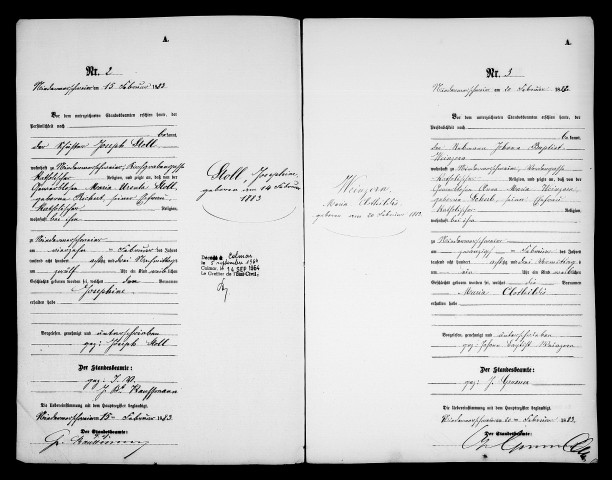 A.
Nr. 2
Niedermorschweier am 15 Februar 1883.
Vor dem unterzeichneten Standesbeamten erschien heute, der
Persönlichkeit nach
bekannt,
der Joseph Stoll
wohnhaft zu Niedermorschweier,
katholischer Religion, und zeigte an, daß von der
Maria Ursula Stoll,
geborene seiner Ehefrau,
katholischer Religion,
wohnhaft bei ihm
zu Niedermorschweier
am vierzehn ten Februar des Jahres
tausend acht hundert achtzig und drei Vormittags
um zwölf Uhr ein Kind weiblichen
Geschlechts geboren worden sei, welches den Vornamen
Josephine
erhalten habe
Vorgelesen, genehmigt und unterschrieben
gez: Joseph Stoll
Der Standesbeamte:
gez: J. V.
Kauffmann
Die Uebereinstimmung mit dem Hauptregister beglaubigt.
Niedermorschweier am 15 ten Februar 1883.
Der Standesbeamte:
Stoll, Josephine
geboren am 14 Februar
1883
Décédé à Colmar
le 5 septembre 1964
Colmar, le 14 SEP 1964
Le Greffier de l'Etat-Civil:
A.
Nr. 3
Niedermorschweier am 20 Februar 1883.
Vor dem unterzeichneten Standesbeamten erschien heute, der
Persönlichkeit nach
bekannt,
der Rebmann Johann Baptist
Weinzorn
wohnhaft zu Niedermorschweier,
katholischer Religion, und zeigte an, daß von der
Anna Maria Weinzorn,
geborene seiner Ehefrau
katholischer Religion,
wohnhaft bei ihm
zu Niedermorschweier
am zwanzig ten Februar des Jahres
tausend acht hundert achtzig und drei Vormittags
um ein Uhr ein Kind weiblichen
Geschlechts geboren worden sei, welches die Vornamen
Maria Clothildis
erhalten habe
Vorgelesen, genehmigt und unterschrieben
gez: Johann Baptist Weinzorn
Der Standesbeamte:
gez:
Die Uebereinstimmung mit dem Hauptregister beglaubigt.
Niedermorschweier am 20 ten Februar 1883.
Der Standesbeamte:
Weinzorn,
Maria Clothildis
geboren am 20 Februar 1883.